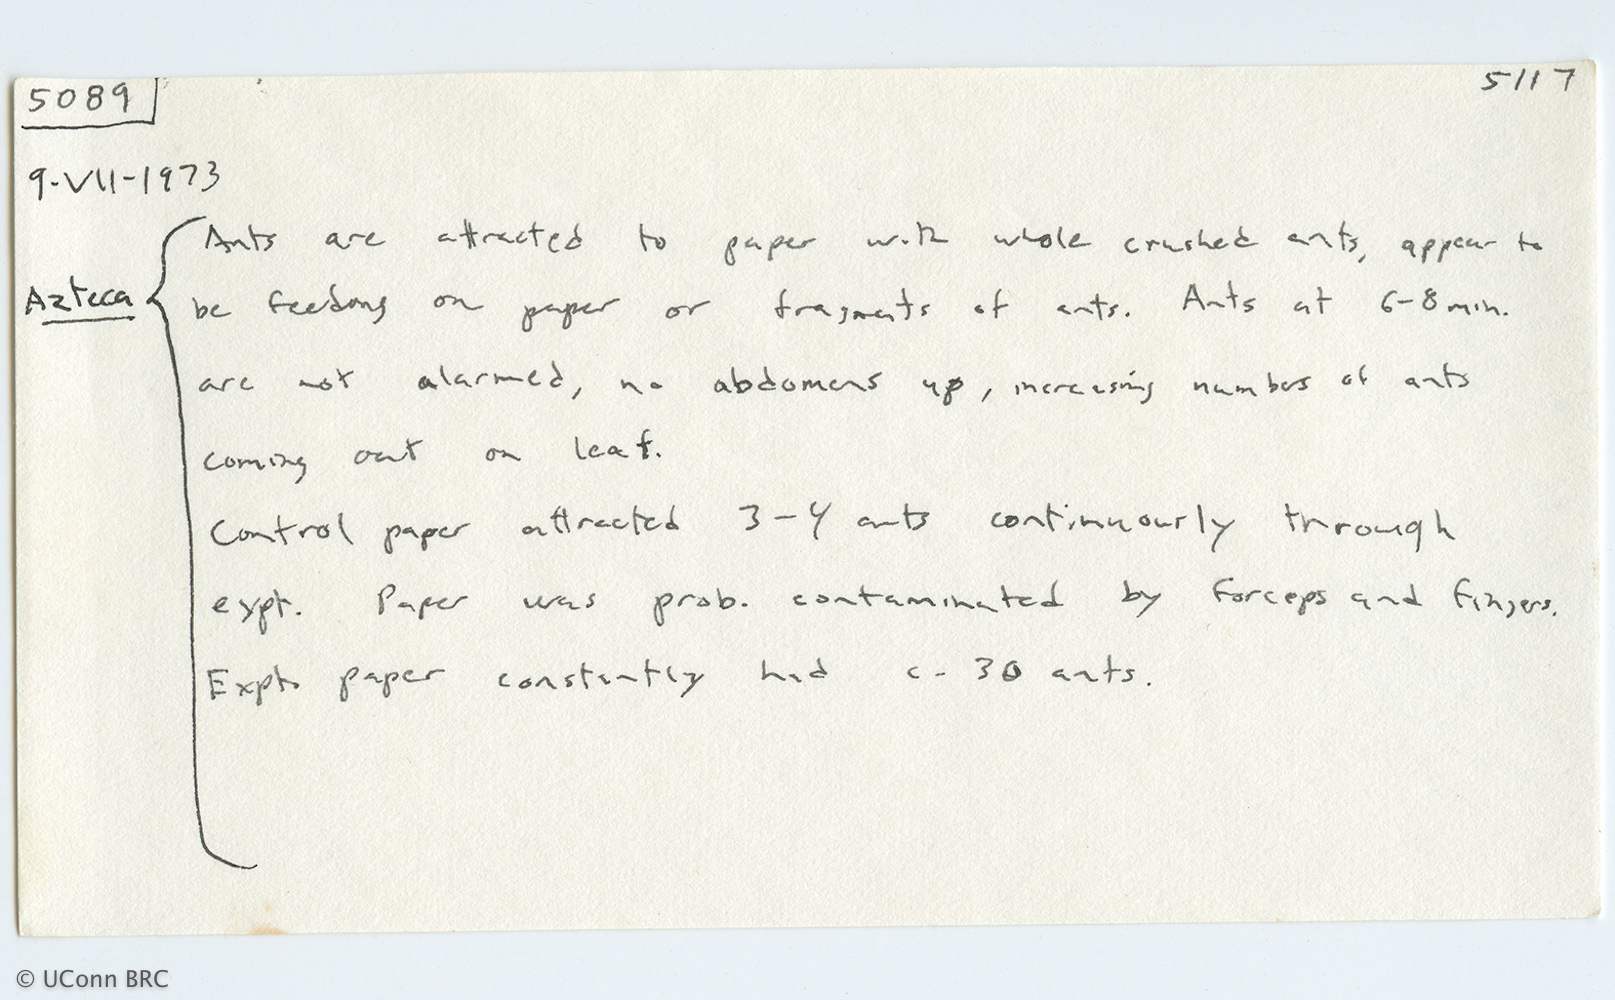 5089
5117
9-VII-1973
Azteca
Ants are attracted to paper with whole crushed ants, appear to
be feeding on paper or fragments of ants. Ants at 6-8 min.
are not alarmed, no abdomens up, increasing numbers of ants
coming out on leaf.
Control paper attracted 3-4 ants continuously through
expt. Paper was prob. contaminated by forceps and fingers.
Expt. paper constantly had c. 30 ants.
© UConn BRC